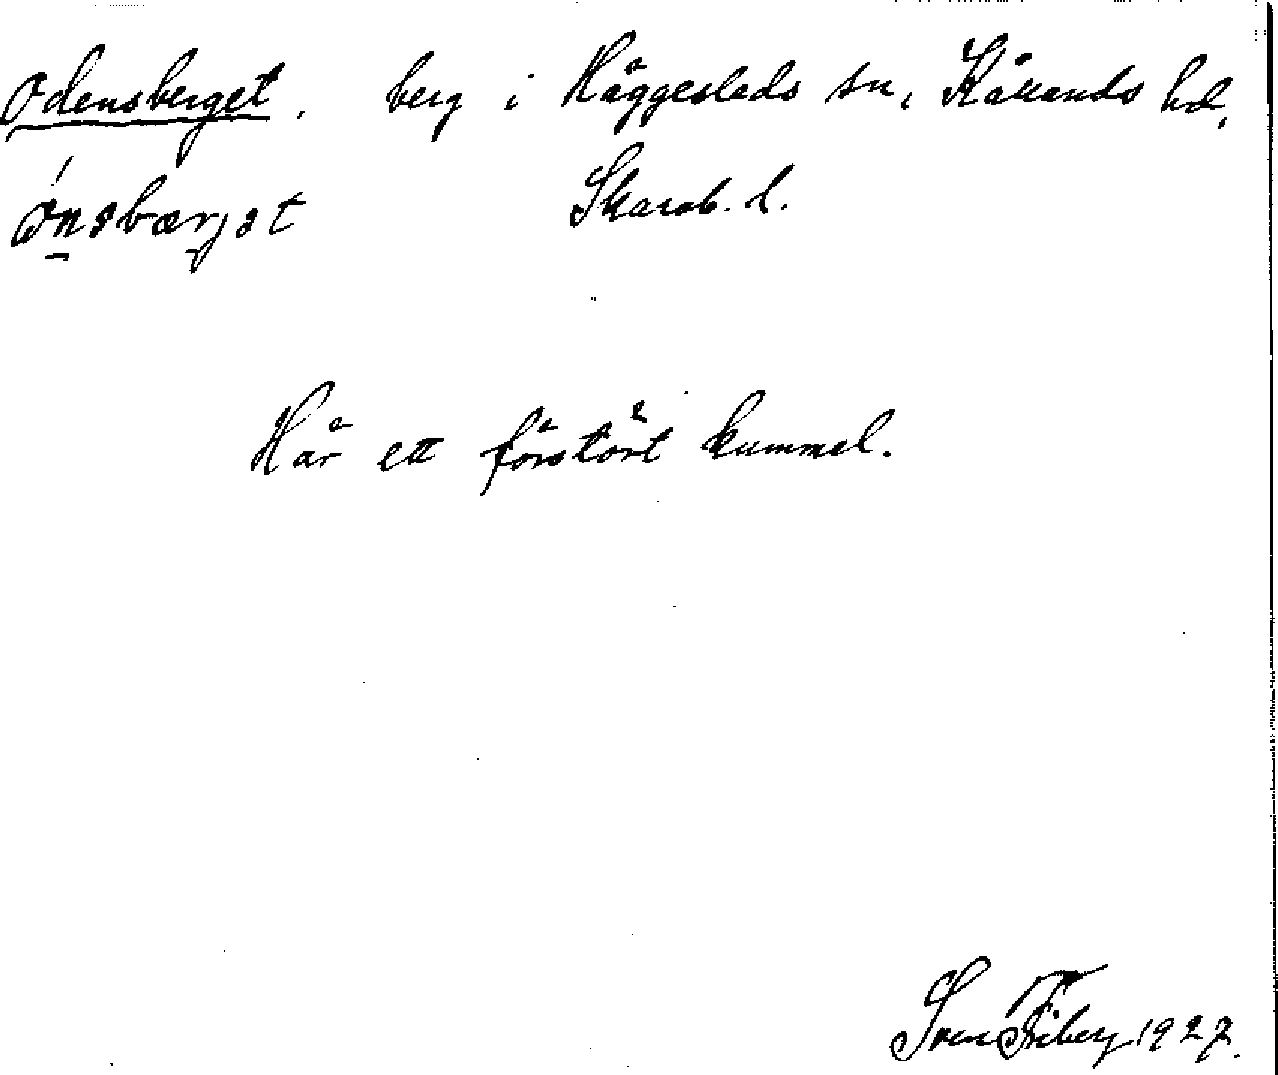 Odensberget. berg i Häggesleds sn, Kållands hd,
Skarab. l.
Här ett förstört kummel.
Sven Fiberg 1927.